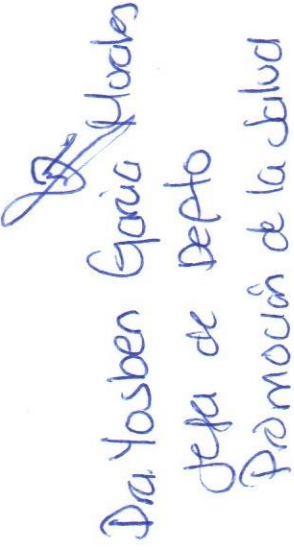 Dra. Yosben García Morales
Jefa de Depto
Promoción de la Salud